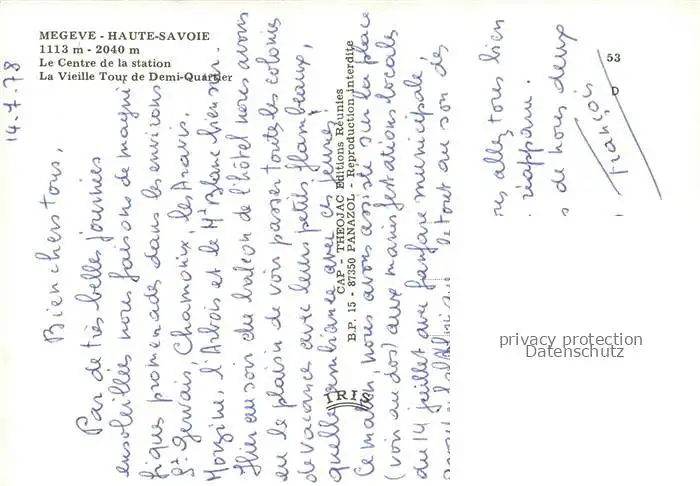 MEGEVE - HAUTE-SAVOIE
1113 m - 2040 m
Le Centre de la station
La Vieille Tour de Demi-Quartier
53
D
14-7-78
Bien chers tous,
Par de très belles journées
ensoleillées nous faisons de magni
fiques promenades dans les environs
St Gervais, Chamonix, les Aravis,
Morzine, l'Arbois et le Mt Blanc bien sûr.
Hier au soir du balcon de l'hôtel nous avons
eu le plaisir de voir passer toutes les colonies
de vacances avec leurs petits flambeaux,
quelle ambiance avec ces jeunes!
Ce matin, nous avons assisté sur la place
(voir au dos) aux manifestations locales
du 14 juillet avec fanfare municipale,
le tout au son des
res allez tous bien
réapparu.
de nous deux
François
CAP - THEOJAC Editions Réunies
B.P. 15 - 87350 PANAZOL - Reproduction interdite
IRIS
privacy protection
Datenschutz